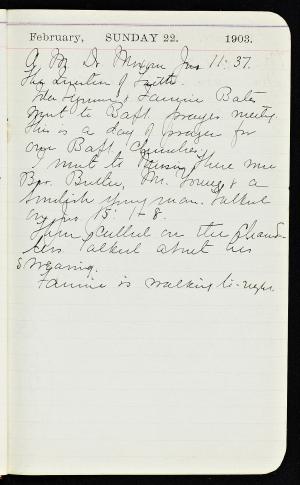 February, SUNDAY 22. 1903.
A M Dr Jno 11:37.
The Question of Faith.
Fannie Bates
went to Bapt. prayer meeting
This is a day of prayer for
our Bapt Churches.
I went to There me
Bro. Butler, Mr. Young & a
young man. Talked
on Jno 15: 1-8.
Then called on the
Talked about his
swearing.
Fannie is walking to-night